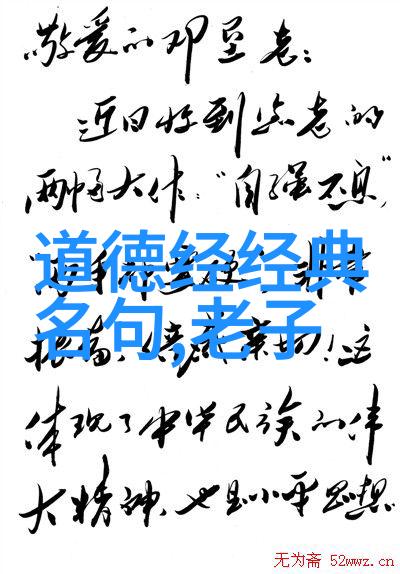 敬爱的邓垦老:
近日收到您老的
两幅大作:“自强不息”
道德经经典
名句,老子
体现了中华民族的伟
大精神,也是小平思想
无为斋 52wwz.cn